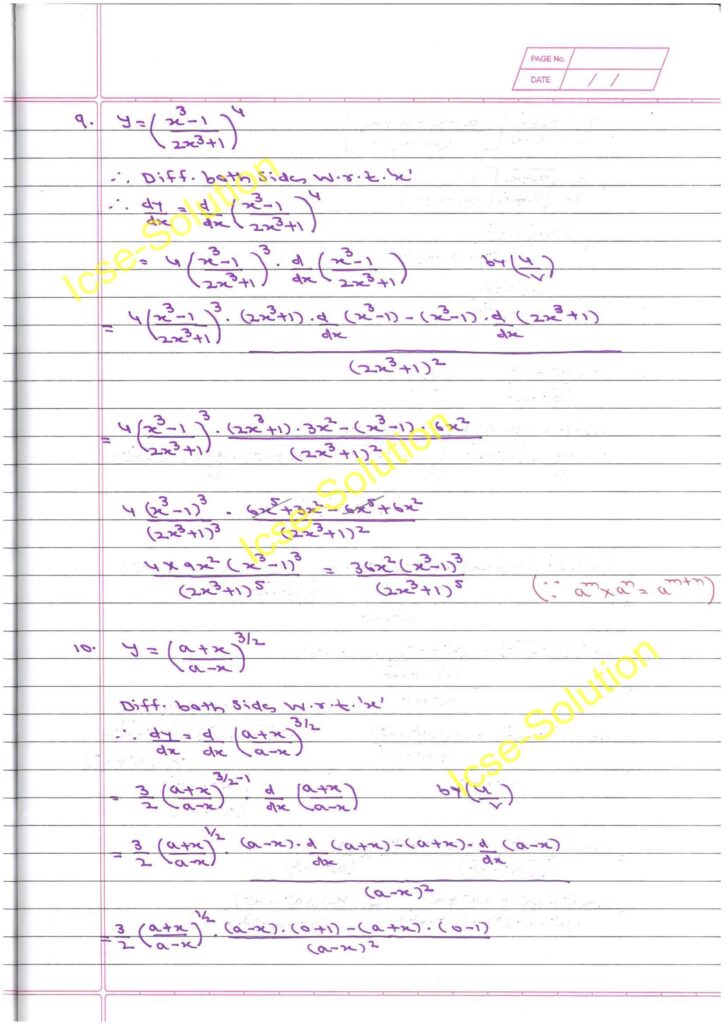 PAGE No.
DATE / /
9. y = ((x³-1)/(2x³+1))⁴
∴ Diff. both Sides w.r.t. 'x'
∴ dy/dx = d/dx ((x³-1)/(2x³+1))⁴
= 4((x³-1)/(2x³+1))³ · d/dx ((x³-1)/(2x³+1)) by (u/v)
= 4((x³-1)/(2x³+1))³ · ((2x³+1) · d/dx (x³-1) - (x³-1) · d/dx (2x³+1))/(2x³+1)²
= 4((x³-1)/(2x³+1))³ · ((2x³+1) · 3x² - (x³-1) · 6x²)/(2x³+1)²
4(x³-1)³/(2x³+1)³ · (6x⁵ + 3x² - 6x⁵ + 6x²)/(2x³+1)²
4 × 9x² (x³-1)³/(2x³+1)⁵ = 36x² (x³-1)³/(2x³+1)⁵ (∵ aᵐ × aⁿ = aᵐ⁺ⁿ)
10. y = ((a+x)/(a-x))^(3/2)
Diff. both Sides w.r.t. 'x'
∴ dy/dx = d/dx ((a+x)/(a-x))^(3/2)
= 3/2 ((a+x)/(a-x))^(3/2-1) · d/dx ((a+x)/(a-x)) by (u/v)
= 3/2 ((a+x)/(a-x))^(1/2) · ((a-x) · d/dx (a+x) - (a+x) · d/dx (a-x))/(a-x)²
= 3/2 ((a+x)/(a-x))^(1/2) · ((a-x) · (0+1) - (a+x) · (0-1))/(a-x)²
Icse-Solution
Icse-Solution
Icse-Solution